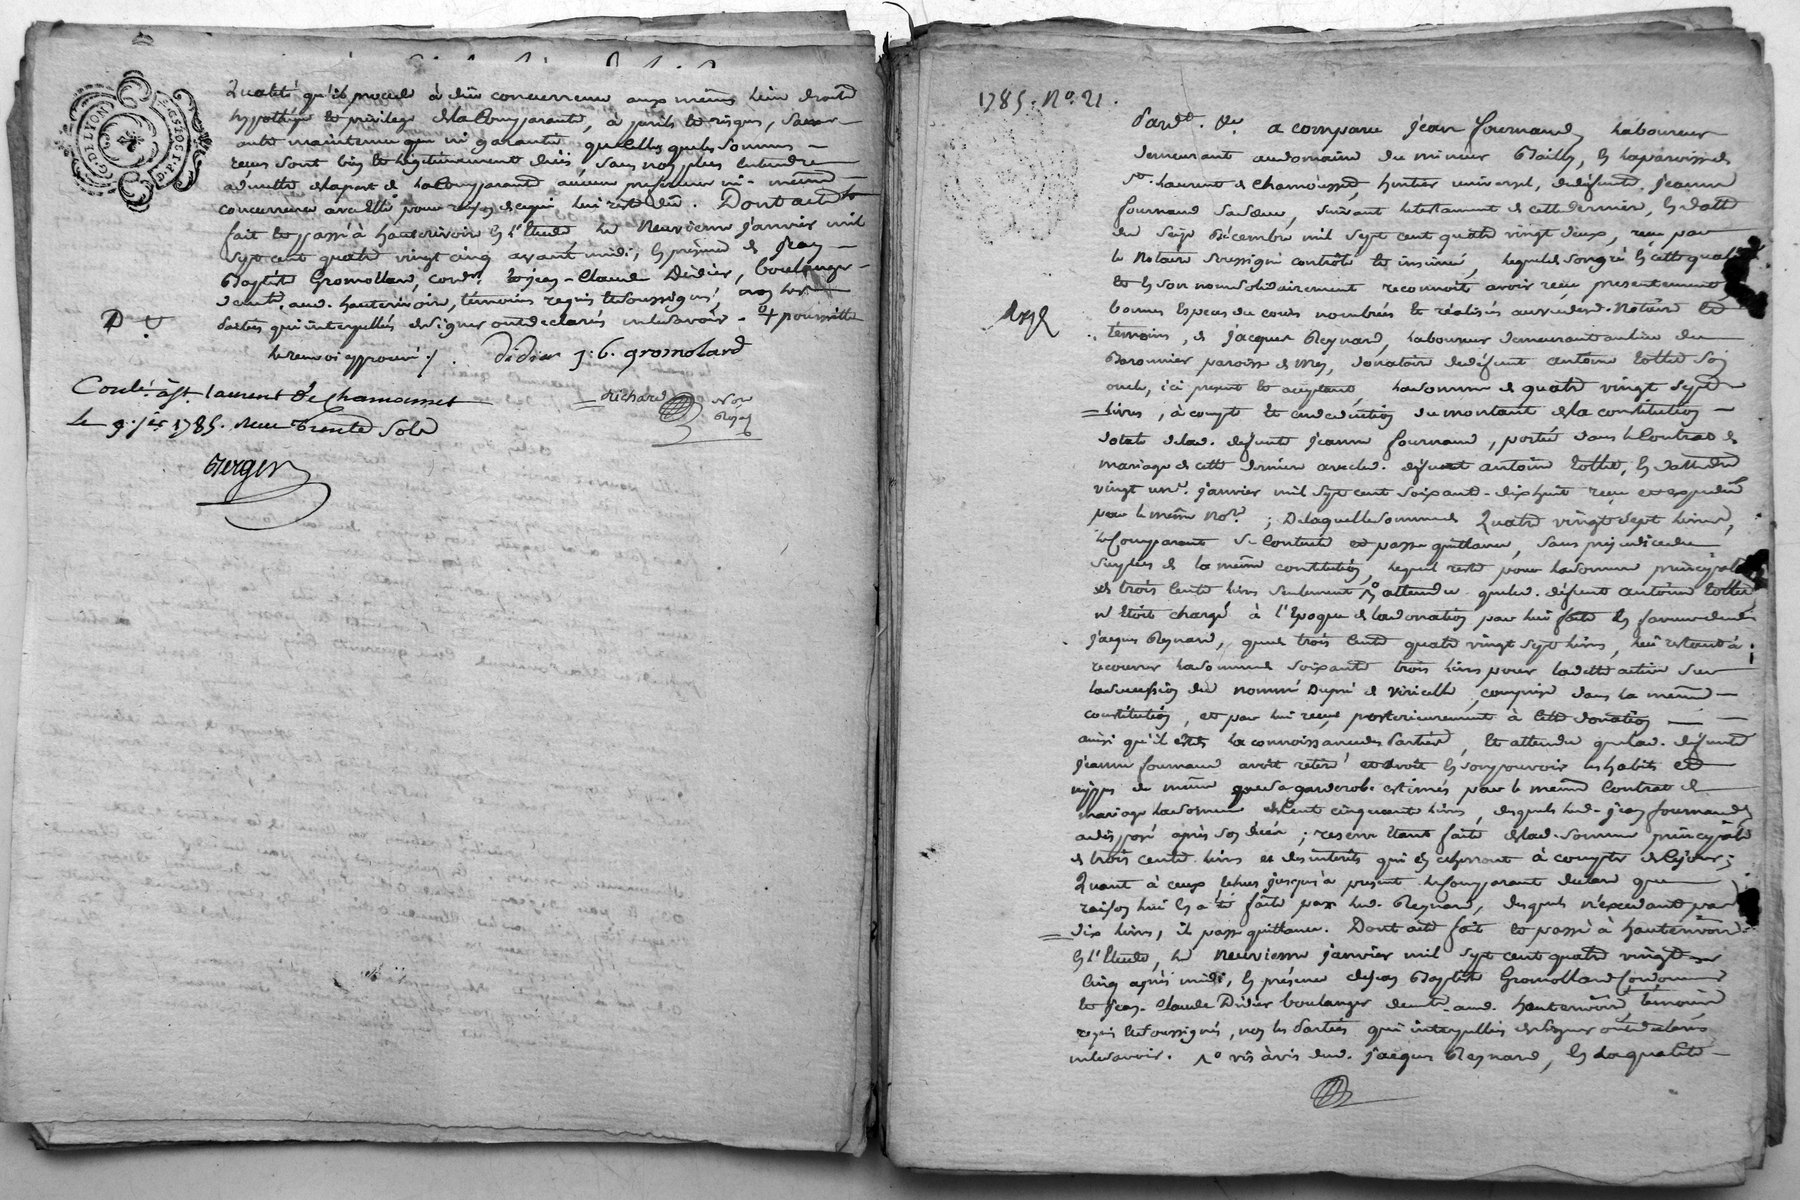 G. D. LYON
2. S. 10 D. P. P.
qualité qu'il procede à due concurrence aux mêmes lieu droits
hypotheque et privilege de la Comparante, à perils et risques, sans
autre maintenue ni garantie quelles que les sommes
recues sont bien et legitimement dues sans non plus entendre
admettre de la part de la Comparante aucune preference ni même
concurrence avec elle pour raison de ce qui lui reste dû. Dont acte
fait et passé à hauterivoire en l'Etude le Neuvieme janvier mil
sept cent quatre vingt cinq avant midi, en présence de jean
Baptiste Gromollard, cord.r et jean-Claude Didier, boulanger
demt. aud. hauterivoire, témoins requis et soussignés, non les
parties qui interpellés de signer ont declarés ne le savoir. + poursuitte
le renvoi approuvé ./. didier j: b. gromolard
Richard Nore Royal
Contlé. à St. laurent De Chamousset
Le 9. jer 1785. Reçu Trente Sols
Berger
1785. No. 21.
Pardt. &c. a comparu jean fournand, laboureur
demeurant au domaine du mineur Bailly, en la paroisse de
St. laurent de Chamousset, heritier universel, de defunte jeanne
fournand sa sœur, suivant le testament de cette derniere, en datte
du seize Décembre mil sept cent quatre vingt deux, reçu par
le Notaire soussigné controlé et insinué, lequel de son gré en cette qualité
et en son nom solidairement reconnoit avoir reçu presentement
bonnes Especes du cours nombrées et réalisées au vu dud. Notaire et
temoins, de jacques Reynard, laboureur demeurant au lieu du
Baronnier paroisse de Mey, donataire de defunt antoine Collet son
oncle, ici present et acceptant, la somme de quatre vingt sept
livres, à compte et en deduction du montant de la constitution
dotale de lad. defunte jeanne fournand, portée dans le Contrat de
mariage de cette derniere avec led. defunt antoine Collet, en datte du
vingt un.e janvier mil sept cent soixante-dix huit reçu et expedié
par le même No.re; De laquelle somme de Quatre vingt sept livres,
le Comparant se Contente et passe quittance, sans prejudice du
surplus de la même constitution, lequel reste pour la somme principale
de trois Cents livres seulement, attendu que led. défunt antoine Collet
n'Etoit chargé à l'Epoque de la donation par lui faite en faveur dud.
jacques Reynard, que de trois Cents quatre vingt sept livres, lui restant à
recouvrer la somme de soixante trois livres pour la dette active sur
la succession du nommé Dupré de Viricelle, comprise dans la même
constitution, et par lui reçue posterieurement à cette donation
ainsi qu'il est de la connoissance des Parties, et attendu que lad. defunte
jeanne fournand avoit retiré et avoit en son pouvoir les habits et
nippes de même que sa garderobe estimés par le même Contrat de
Mariage la somme de Cent cinquante livres, desquels led. jean fournand
a disposé après son décès; reserve étant faite de lad. somme principale
de trois cents livres et des interêts qui en echerront à compter de Cejour;
Quant à ceux echus jusqu'a present le Comparant declare que
raison lui en a eté faite par led. Reynard, desquels n'excedant pas
dix livres, il passe quittance. Dont acte fait et passé à hauterivoire
en l'Etude, le Neuvieme janvier mil sept cent quatre vingt
Cinq après midi, en présence de jean Baptiste Gromollard Cordonnier
et jean-Claude Didier boulanger demts. aud. hauterivoire, témoins
requis et soussignés, non les Parties qui interpellés de signer ont declarés
ne le savoir. 1° vis à vis dud. jacques Reynard, en la qualité